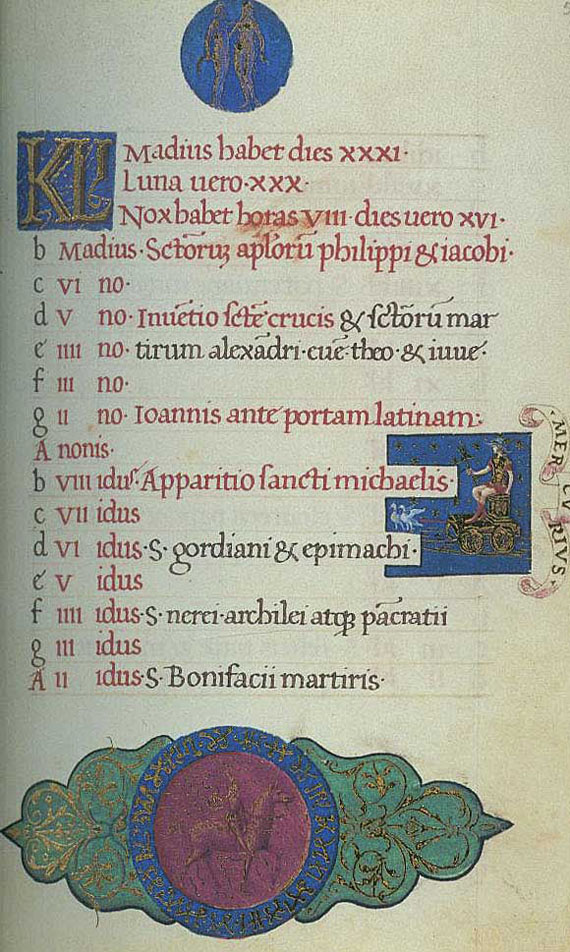 KL Madius habet dies xxxi·
Luna uero·xxx·
Nox habet horas viii· dies uero xvi·
b Madius· Sctorꝝ aploꝝ philippi & iacobi·
c vi no·
d v no· Inuẽtio sctẽ crucis & sctorũ mar
e iiii no· tirum alexãdri· euẽ· theo· & iuuẽ·
f iii no·
g ii no· Ioannis ante portam latinam:
A nonis·
b viii idus· Apparitio sancti michaelis·
c vii idus
d vi idus· S· gordiani & epimachi·
e v idus
f iiii idus· S· nerei· archilei atqꝫ pãcratii
g iii idus
A ii idus· S· Bonifacii martiris·
MERCVRIVS·